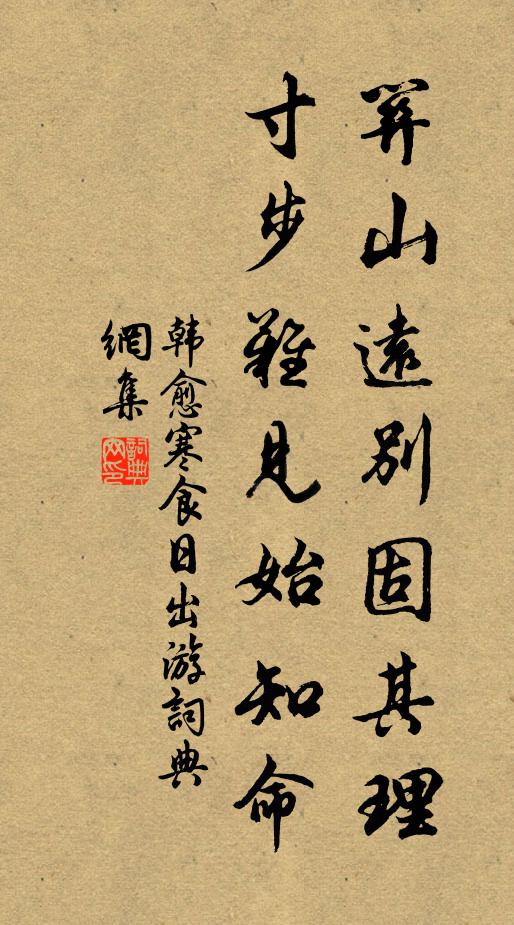 關山遠別固其理
寸步難見始知命
韩愈寒食日出游詞典
網集
詞典
网印